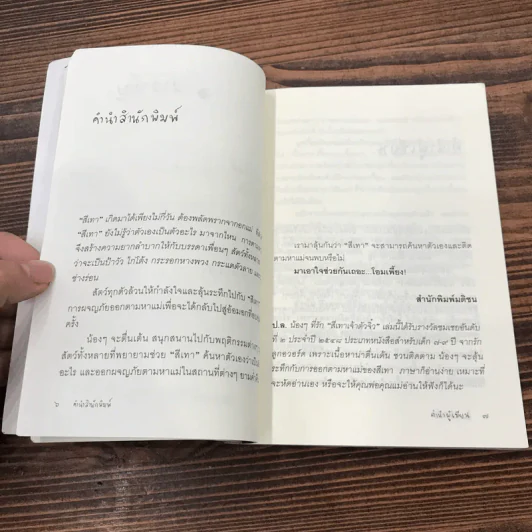 คำนำสำนักพิมพ์
"สีเทา" เกิดมาได้เพียงไม่กี่วัน ต้องพลัดพรากจากอกแม่
"สีเทา" ยังไม่รู้ว่าตัวเองเป็นตัวอะไร มาจากไหน การตาม
จึงสร้างความยากลำบากให้กับบรรดาเพื่อนๆ สัตว์ทั้ง
ว่าจะเป็นป้าวัว ไก่โต้ง กระรอกหางพวง กระแตตัวลาย
ช่างร่อน
สัตว์ทุกตัวล้วนให้กำลังใจและลุ้นระทึกไปกับ "สีเทา"
การผจญภัยออกตามหาแม่เพื่อจะได้กลับไปสู่อ้อมอก
ครั้ง
น้องๆ จะตื่นเต้น สนุกสนานไปกับพฤติกรรม
สัตว์ทั้งหลายที่พยายามช่วย "สีเทา" ค้นหาตัวเองว่าเป็น
อะไร และออกผจญภัยตามหาแม่ในสถานที่ต่างๆ ยามค่ำ
๖ คำนำสำนักพิมพ์
เรามาลุ้นกันว่า "สีเทา" จะสามารถค้นหาตัวเองและติด
ตามหาแม่จนพบหรือไม่
มาเอาใจช่วยกันเถอะ...โอมเพี้ยง!
สำนักพิมพ์มติชน
ป.ล. น้องๆ ที่รัก "สีเทาเจ้าตัวจิ๋ว" เล่มนี้ได้รับรางวัลชมเชยอันดับ
ที่ ๒ ประจำปี ๒๕๔๘ ประเภทหนังสือสำหรับเด็ก ๗-๙ ปี จากรัก
ลูกอวอร์ด เพราะเนื้อหาน่าตื่นเต้น ชวนติดตาม น้องๆ จะลุ้น
ระทึกกับการออกตามหาแม่ของสีเทา ภาษาก็อ่านง่าย เหมาะที่
จะหัดอ่านเอง หรือจะให้คุณพ่อคุณแม่อ่านให้ฟังก็ได้นะ
คำนำผู้เขียน ๗